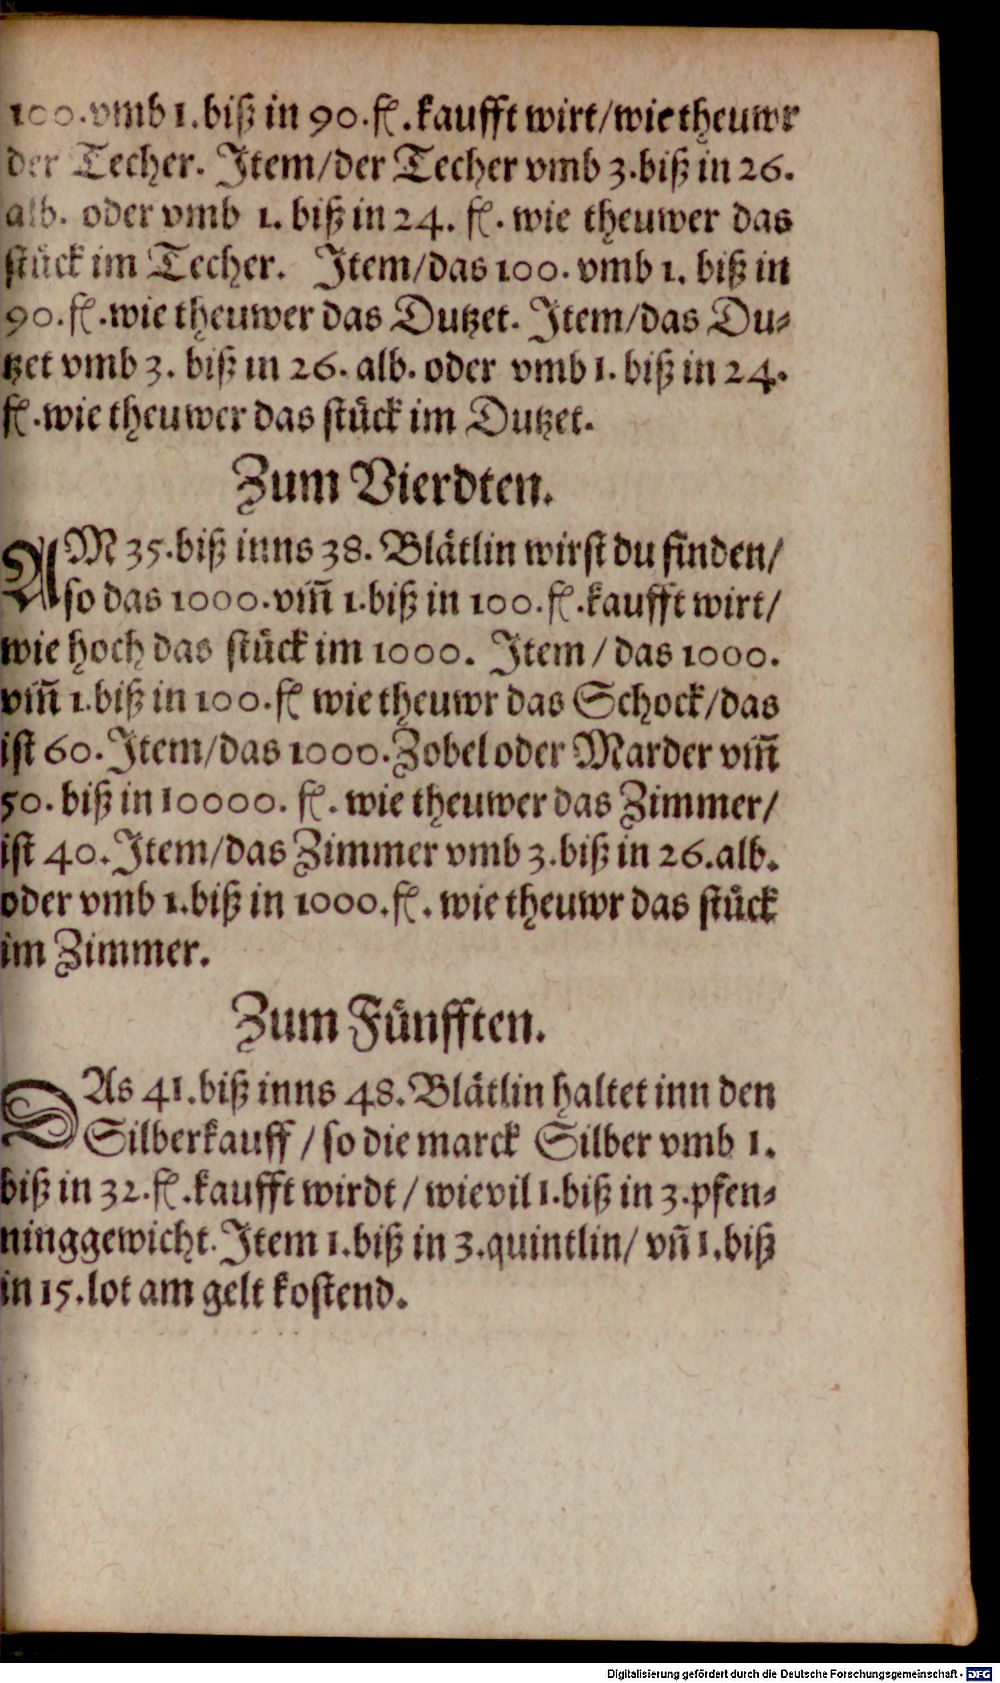 100.vmb 1.biß in 90.fl.kaufft wirt/wie theuwr
der Techer. Item/der Techer vmb 3.biß in 26.
alb. oder vmb 1. biß in 24. fl. wie theuwer das
stuͤck im Techer. Item/das 100. vmb 1. biß in
90.fl.wie theuwer das Dutzet. Item/das Du⸗
tzet vmb 3. biß in 26. alb. oder vmb 1. biß in 24.
fl.wie theuwer das stuͤck im Dutzet.
Zum Vierdten.
AM 35.biß inns 38. Blaͤtlin wirst du finden/
so das 1000.vm̄ 1.biß in 100.fl.kaufft wirt/
wie hoch das stuͤck im 1000. Item/das 1000.
vm̄ 1.biß in 100.fl wie theuwr das Schock/das
ist 60. Item/das 1000.Zobel oder Marder vm̄
50. biß in 10000. fl. wie theuwer das Zimmer/
ist 40. Item/das Zimmer vmb 3.biß in 26.alb.
oder vmb 1.biß in 1000.fl. wie theuwr das stuͤck
im Zimmer.
Zum Fuͤnfften.
DAs 41.biß inns 48.Blaͤtlin haltet inn den
Silberkauff/so die marck Silber vmb 1.
biß in 32.fl.kaufft wirdt/wievil 1.biß in 3.pfen⸗
ninggewicht. Item 1.biß in 3.quintlin/vn̄ 1.biß
in 15.lot am gelt kostend.
Digitalisierung gefördert durch die Deutsche Forschungsgemeinschaft - DFG